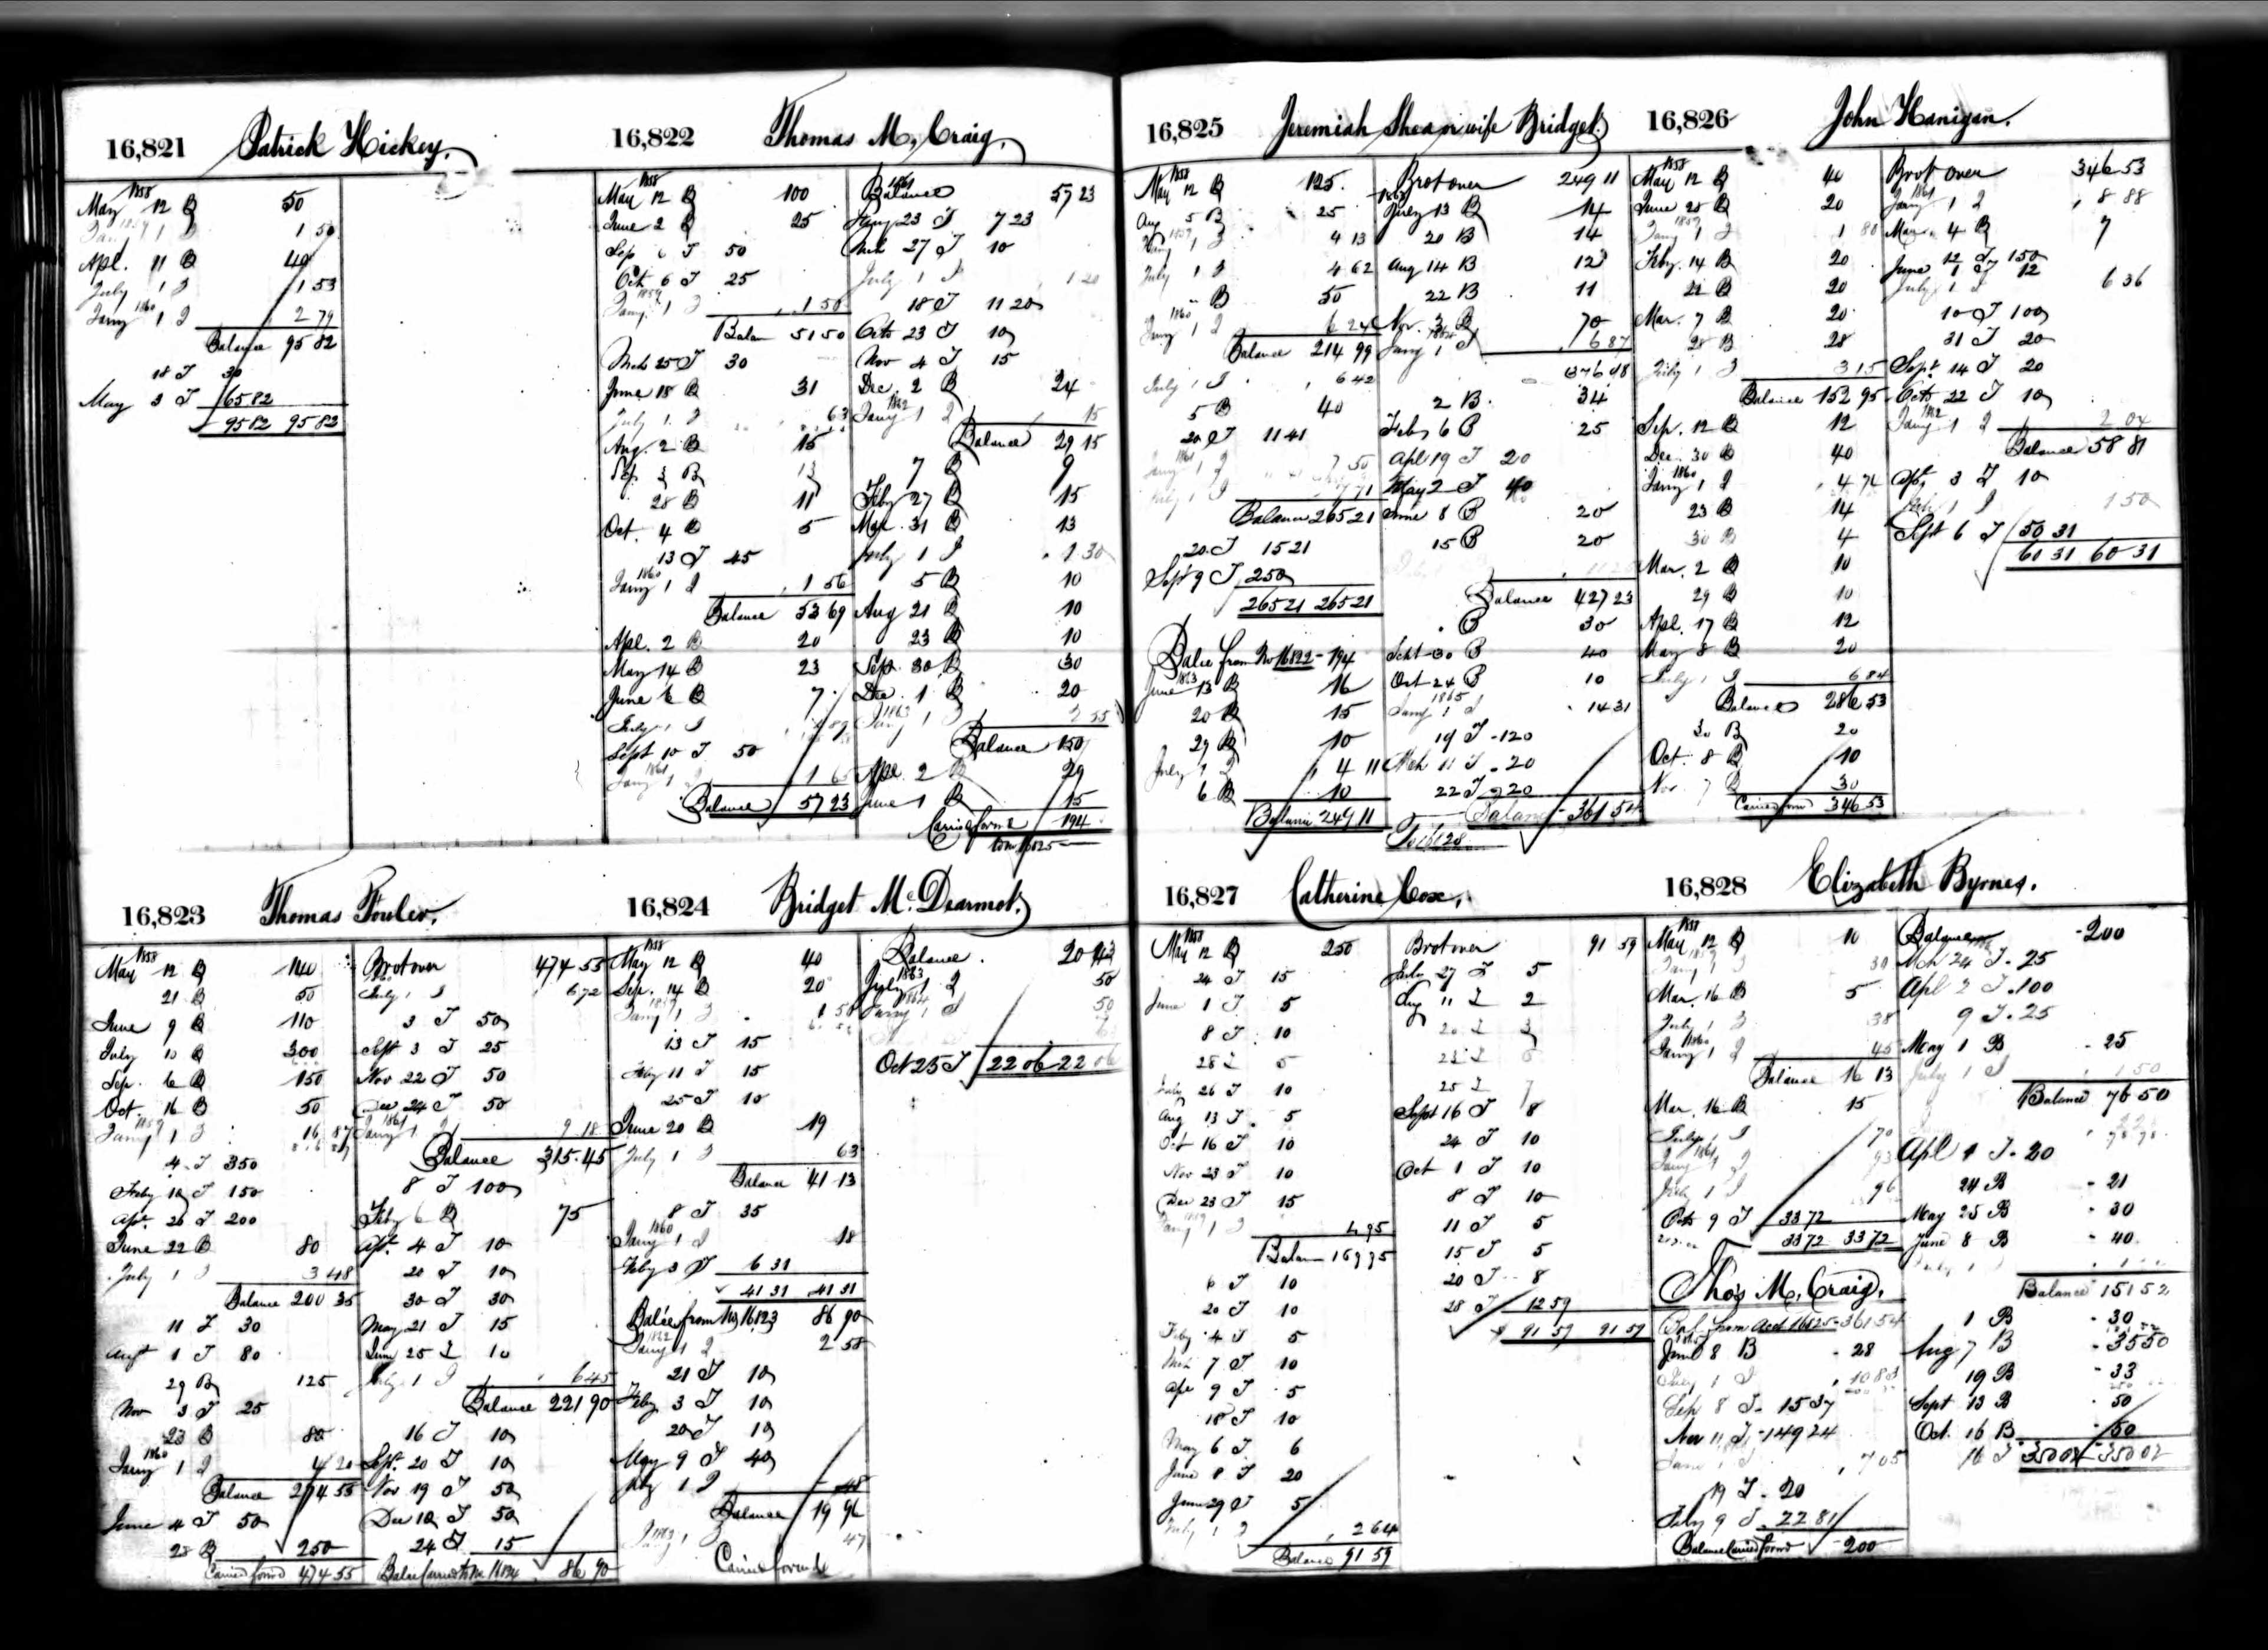 16,821 Patrick Hickey.
1858
May 12 B 50
1859
Jany 1 I 1 50
Apl. 11 B 40
July 1 I 1 53
1860
Jany 1 I 2 79
Balance 95 82
18 T 30
May 3 T 65 82
95 82 95 82
16,822 Thomas M, Craig,
1858
May 12 B 100
June 2 B 25
Sep 6 T 50
Oct 6 T 25
1859
Jany 1 I 1 50
Balan 51 50
Mch 25 T 30
June 18 B 31
July 1 I 63
Aug. 2 B 15
Sep. 3 B 13
28 B 11
Oct. 4 B 5
13 T 45
1860
Jany 1 I 1 56
Balance 53 69
Apl. 2 B 20
May 14 B 23
June 6 B 7
July 1 I 1 89
Sept 10 T 50
1861
Jany 1 I 1 65
Balance 57 23
1861
Balance 57 23
Jany 23 T 7 23
Mch 27 T 10
July 1 I 1 20
18 T 11 20
Octo 23 T 10
Nov 4 T 15
Dec. 2 B 24
1862
Jany 1 I 15
Balance 29 15
7 B 9
Feby 27 B 15
Mar. 31 B 13
July 1 I 1 30
5 B 10
Aug 21 B 10
23 B 10
Sep. 30 B 30
Dec. 1 B 20
1863
Jany 1 I 2 55
Balance 150
Apl. 2 B 29
June 1 B 15
Carried forwd 194
to No 16825
16,823 Thomas Fowler.
1858
May 12 B 140
21 B 50
June 9 B 110
July 10 B 300
Sep. 6 B 150
Oct. 16 B 50
1859
Jany 1 I 16 87
4 T 350
Feby 10 T 150
Apl. 26 T 200
June 22 B 80
July 1 I 3 48
Balance 200 35
11 T 30
Augt 1 T 80
29 B 125
Nov 3 T 25
23 B 80
1860
Jany 1 I 4 20
Balance 274 55
June 4 T 50
28 B 250
Carried forwd 474 55
Brot over 474 55
1860
July 1 I 6 72
3 T 50
Sept 3 T 25
Nov 22 T 50
Dec 24 T 50
1861
Jany 1 I 9 18
Balance 315.45
8 T 100
Feby 6 B 75
Apl. 4 T 10
20 T 10
30 T 30
May 21 T 15
June 25 T 10
July 1 I 6 45
Balance 221 90
16 T 10
Sept. 20 T 10
Nov 19 T 50
Dec 10 T 50
24 T 15
Balce Carried to No 16824 86 90
16,824 Bridget Mc Dearmot.
1858
May 12 B 40
Sep. 14 B 20
1859
Jany 1 I 1 50
13 T 15
Feby 11 T 15
25 T 10
June 20 B 19
July 1 I 63
Balance 41 13
8 T 35
1860
Jany 1 I 18
Feby 3 T 6 31
41 31 41 31
Balce from No 16823 86 90
1862
Jany 1 I 2 58
21 T 10
Feby 3 T 10
20 T 10
May 9 T 40
July 1 I 48
Balance 19 96
1863
Jany 1 I 47
Carried forwd
Balance 20 43
1863
July 1 I 50
1864
Jany 1 I 50
Oct 25 T 22 06 22 06
16,825 Jeremiah Shea or wife Bridget.
1858
May 12 B 125.
Aug 5 B 25
1859
Jany 1 I 4 13
July 1 I 4 62
" B 50
1860
Jany 1 I 6 24
Balance 214 99
July 1 I 6 42
5 B 40
20 T 11 41
1861
Jany 1 I 7 50
July 1 I 7 71
Balance 265 21
20 T 15 21
Sept 9 T 250
265 21 265 21
Balce from No 16822 - 194
1863
June 13 B 16
20 B 15
29 B 10
July 1 I 4 11
6 B 10
Balance 249 11
Brot over 249 11
1863
July 13 B 14
20 B 14
Aug 14 B 12
22 B 11
Nov. 3 B 70
1864
Jany 1 I 6 87
376 98
2 B 34
Feby 6 B 25
Apl 19 T 20
May 2 T 40
June 8 B 20
15 B 20
Balance 427 23
" B 30
Sept 30 B 40
Oct 24 B 10
1865
Jany 1 I 14 31
19 T - 120
Mch 11 T - 20
22 T 20
Balance - 361 54
To 16828
16,826 John Hanigan.
1858
May 12 B 40
June 25 B 20
1859
Jany 1 I 1 80
Feby. 14 B 20
21 B 20
Mar. 7 B 20
28 B 28
July 1 I 3 15
Balance 152 95
Sep. 12 B 12
Dec. 30 B 40
1860
Jany 1 I 4 74
23 B 14
30 B 4
Mar. 2 B 10
29 B 10
Apl. 17 B 12
May 8 B 20
July 1 I 6 84
Balance 286 53
30 B 20
Oct. 8 B 10
Nov. 7 B 30
Carried forwd 346 53
Brot over 346 53
1861
Jany 1 I 8 88
Mar. 4 B 7
June 12 T 150
1 T 12
July 1 I 6 36
10 T 100
31 T 20
Sept. 14 T 20
Octo 22 T 10
1862
Jany 1 I 2 04
Balance 58 81
Apl. 3 T 10
July 1 I 1 50
Sept 6 T 50 31
60 31 60 31
16,827 Catherine Cox,
1858
May 12 B 250
24 T 15
June 1 T 5
8 T 10
28 T 5
July 26 T 10
Aug 13 T 5
Oct 16 T 10
Nov 23 T 10
Dec 23 T 15
1859
Jany 1 I 4 95
Balan 169 95
6 T 10
20 T 10
Feby 4 T 5
Mch 7 T 10
Apl 9 T 5
18 T 10
May 6 T 6
June 8 T 20
June 29 T 5
July 1 I 2 64
Balance 91 59
Brot over 91 59
July 27 T 5
Aug 11 T 2
20 T 3
22 T 5
25 T 7
Sept 16 T 8
24 T 10
Oct 1 T 10
8 T 10
11 T 5
15 T 5
20 T 8
28 T 12 59
91 59 91 59
16,828 Elizabeth Byrnes.
1858
May 12 B 10
1859
Jany 1 I 30
Mar. 16 B 5
July 1 I 38
1860
Jany 1 I 45
Balance 16 13
Mar. 16 B 15
July 1 I 70
1861
Jany 1 I 93
July 1 I 96
Octo 9 T 33 72
33 72 33 72
Thos M, Craig.
Bal. from acct 16825 - 361 54
1865
June 8 B - 28
July 1 I 10 83
Sep 8 T - 15 37
Nov 11 T - 149 24
Jany 1 I 7 05
19 T - 20
Feby 9 T - 22 81
Balance Carried forwd 200
Balance - 200
Mch 24 T - 25
Apl 2 T - 100
9 T - 25
May 1 B - 25
July 1 I 1 50
Balance 76 50
Apl 1 T - 20
24 B - 21
May 25 B - 30
June 8 B - 40
Balance 151 52
1 B - 30
Aug 7 B - 35 50
19 B - 33
Sept 13 B - 50
Oct. 16 B - 50
16 T 350 02 - 350 02